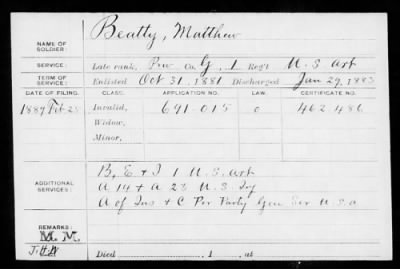 NAME OF SOLDIER: Beatty, Matthew
SERVICE: Late rank, Priv Co. G, 1 Reg't U. S. Art
TERM OF SERVICE: Enlisted Oct 31, 1881 Discharged Jan 29, 1883
DATE OF FILING. CLASS. APPLICATION NO. LAW. CERTIFICATE NO.
1889 Feb 25 Invalid, 691-015 462-486
Widow,
Minor,
ADDITIONAL SERVICES: B, E & I 1 U. S. Art
A 14 & A 23 U. S. Inf
A of Ins & C Per Party Gen Ser U.S.A
REMARKS: M. M.
Died , 1 , at